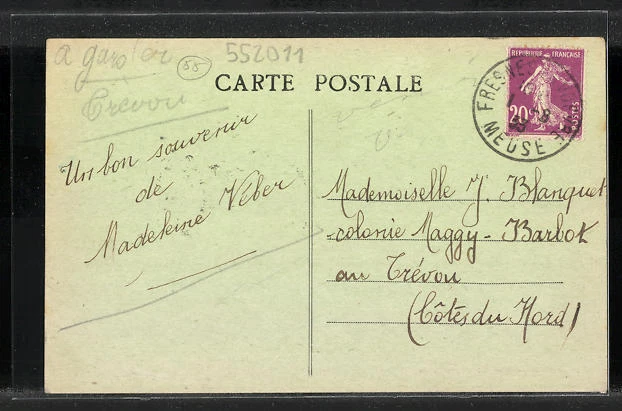 a garder
55
552011
Trévou
CARTE POSTALE
REPUBLIQUE FRANÇAISE
20c
POSTES
FRESNE
MEUSE
28
Un bon souvenir
de
Madeleine Véber
Mademoiselle J. Blanquet
colonie Maggy-Barbok
au Trévou
(Côtes du Nord)